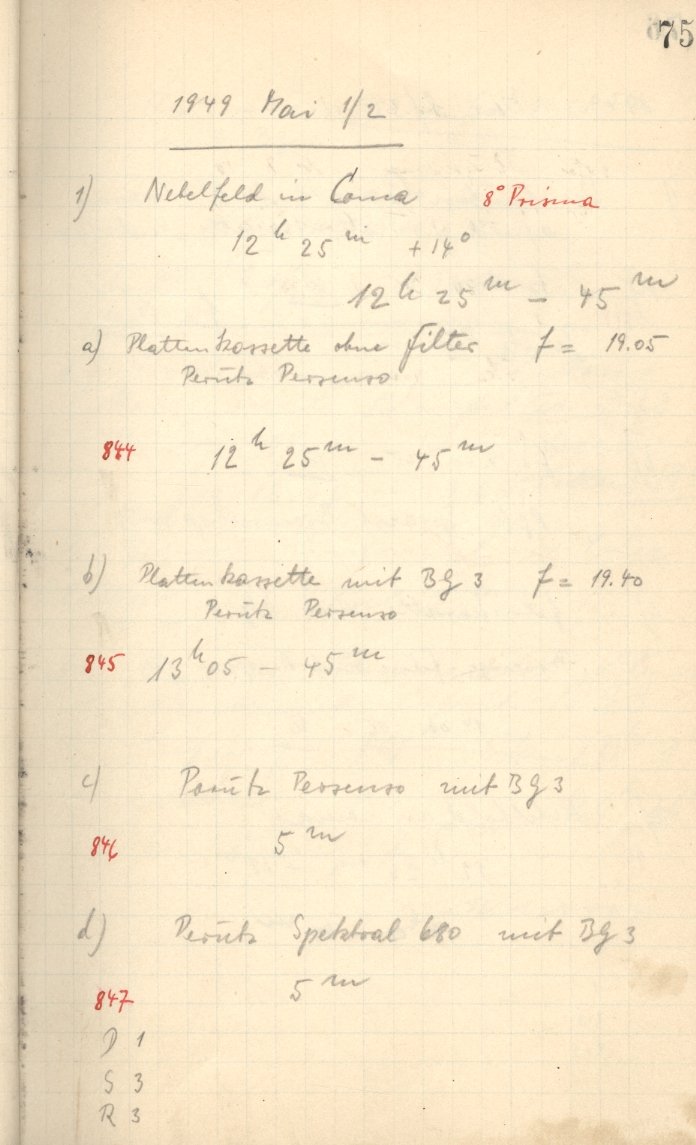 75
1949 Mai 1/2
1) Nebelfeld in Coma 8° Prisma
12 h 25 m + 14°
12 h 25 m - 45 m
a) Plattenkassette ohne Filter f = 19.05
Perutz Persenso
844 12 h 25 m - 45 m
b) Plattenkassette mit BG 3 f = 19.40
Perutz Persenso
845 13 h 05 - 45 m
c) Perutz Persenso mit BG 3
846 5 m
d) Perutz Spektral 680 mit BG 3
847 5 m
D 1
S 3
R 3